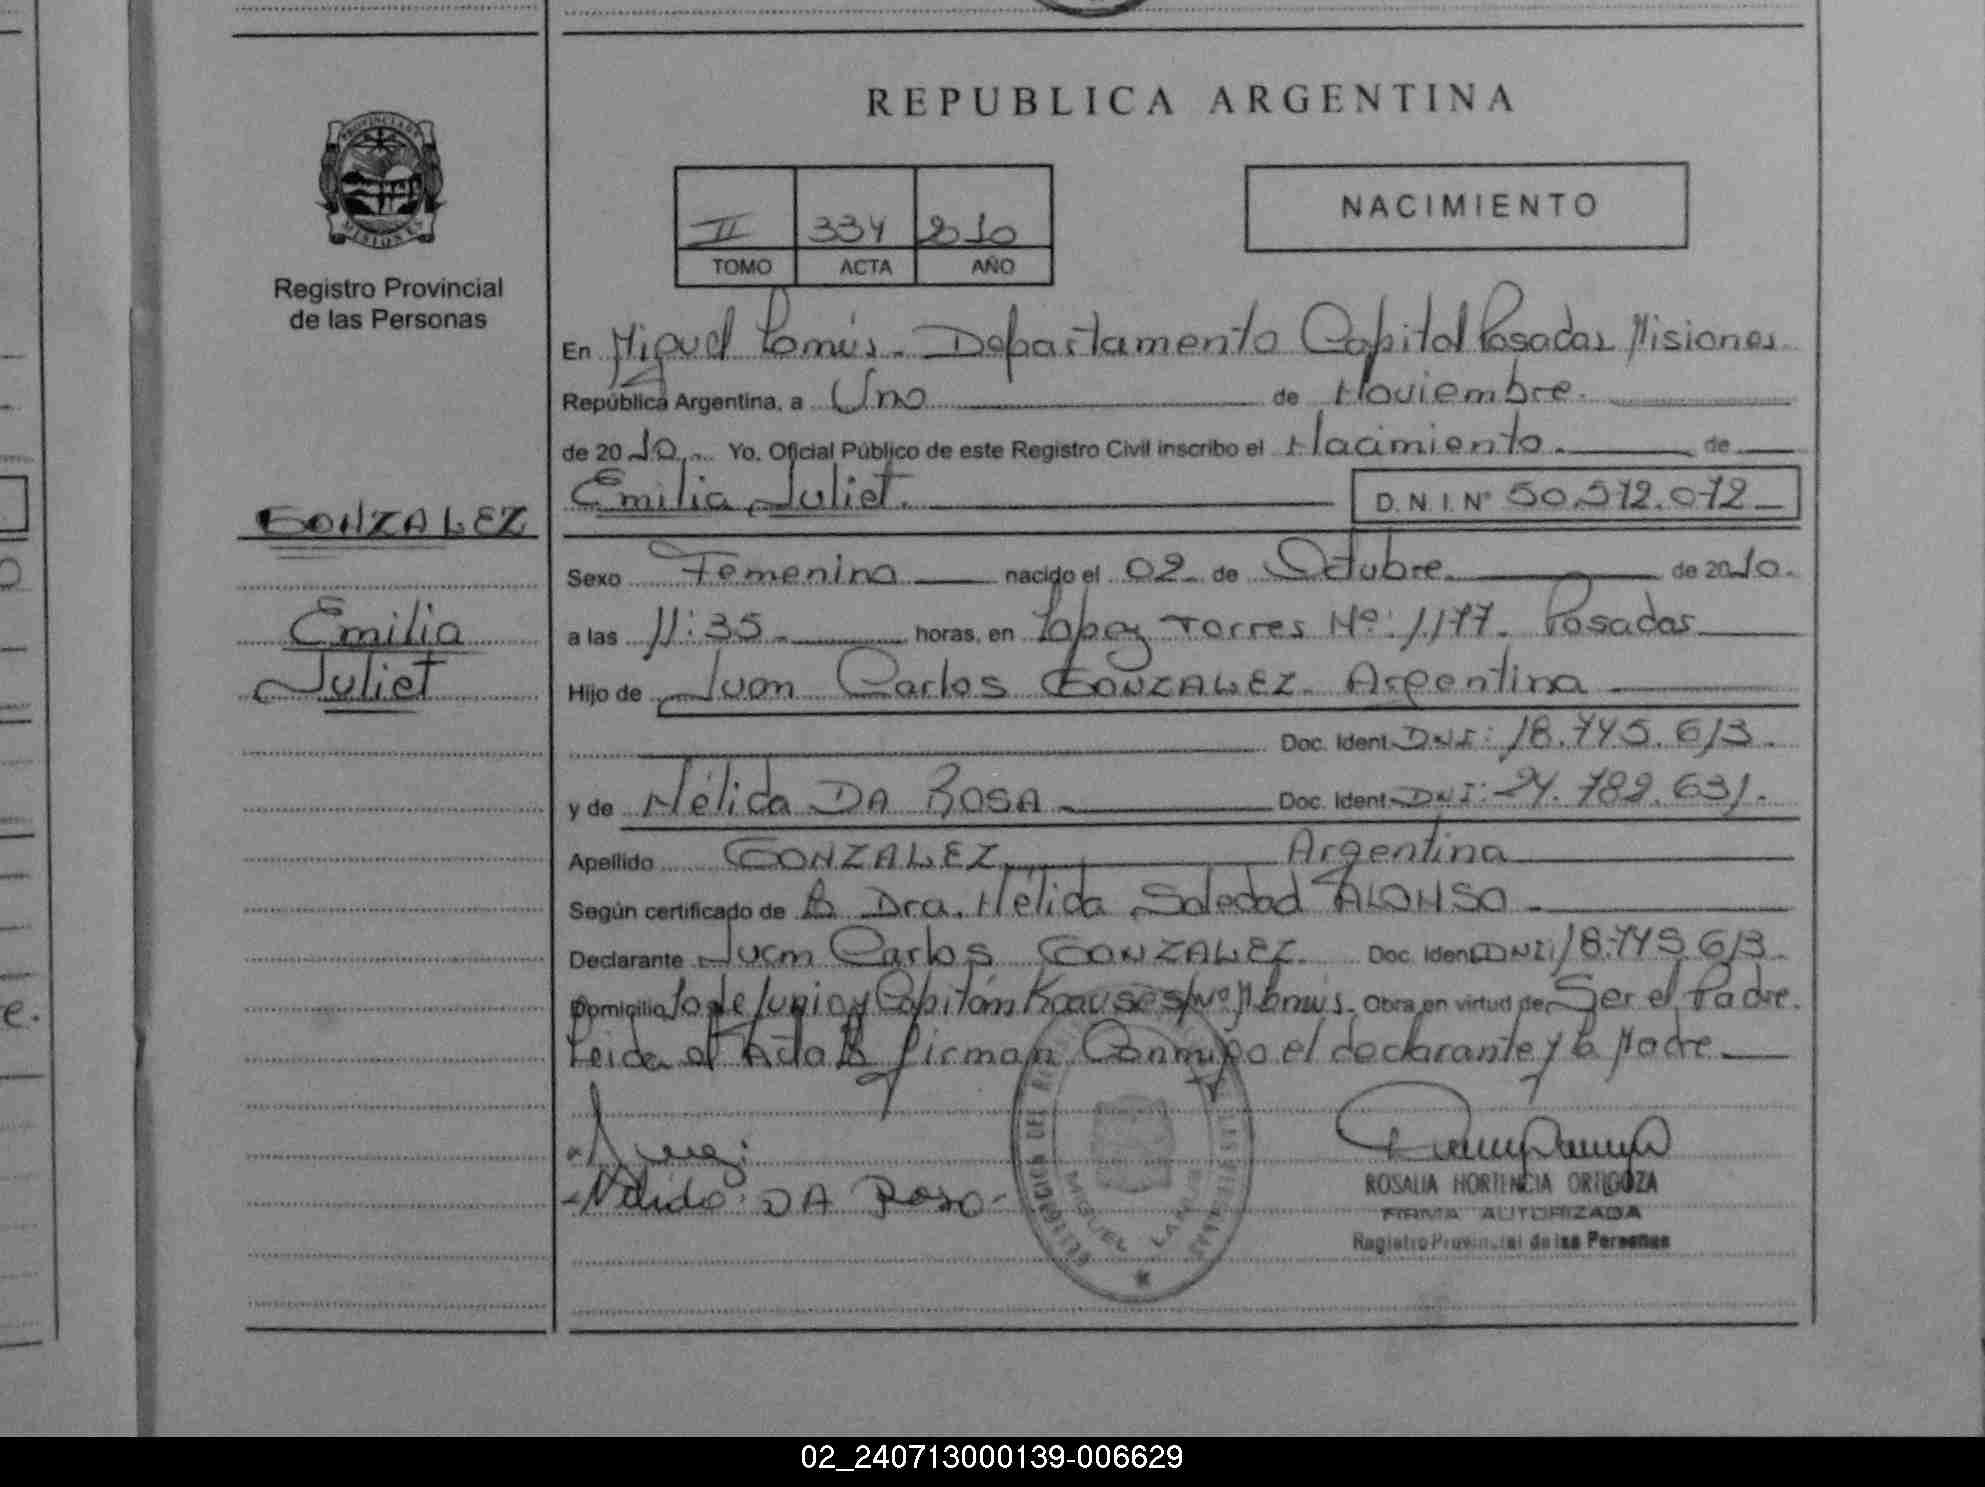 REPUBLICA ARGENTINA
PROVINCIA DE
MISIONES
Registro Provincial
de las Personas
II 334 2010
TOMO ACTA AÑO
NACIMIENTO
En Miguel Lanús. Departamento Capital Posadas Misiones
República Argentina, a Uno de Noviembre.
de 2010 Yo, Oficial Público de este Registro Civil inscribo el Nacimiento. de
Emilia Juliet. D.N.I. Nº 50.572.072
GONZALEZ
Emilia
Juliet
Sexo Femenino nacido el 02 de Octubre de 2010.
a las 11:35 horas, en López Torres Nº: 1.177. Posadas
Hijo de Juan Carlos GONZALEZ. Argentina
Doc. Ident. DNI: 18.745.613.
y de Nélida DA ROSA Doc. Ident. DNI: 24.782.631.
Apellido GONZALEZ Argentina
Según certificado de la Dra. Nélida Soledad ALONSO
Declarante Juan Carlos GONZALEZ. Doc. Ident. DNI: 18.745.613.
Domicilio 10 de Junio y Capitán Krause s/nº M Lanús. Obra en virtud de Ser el Padre.
Leida el Acta la firman Conmigo el declarante y la Madre
Nelida DA Rosa
MIGUEL LANUS
ROSALIA HORTENCIA ORTIGOZA
FIRMA AUTORIZADA
Registro Provincial de las Personas
02_240713000139-006629